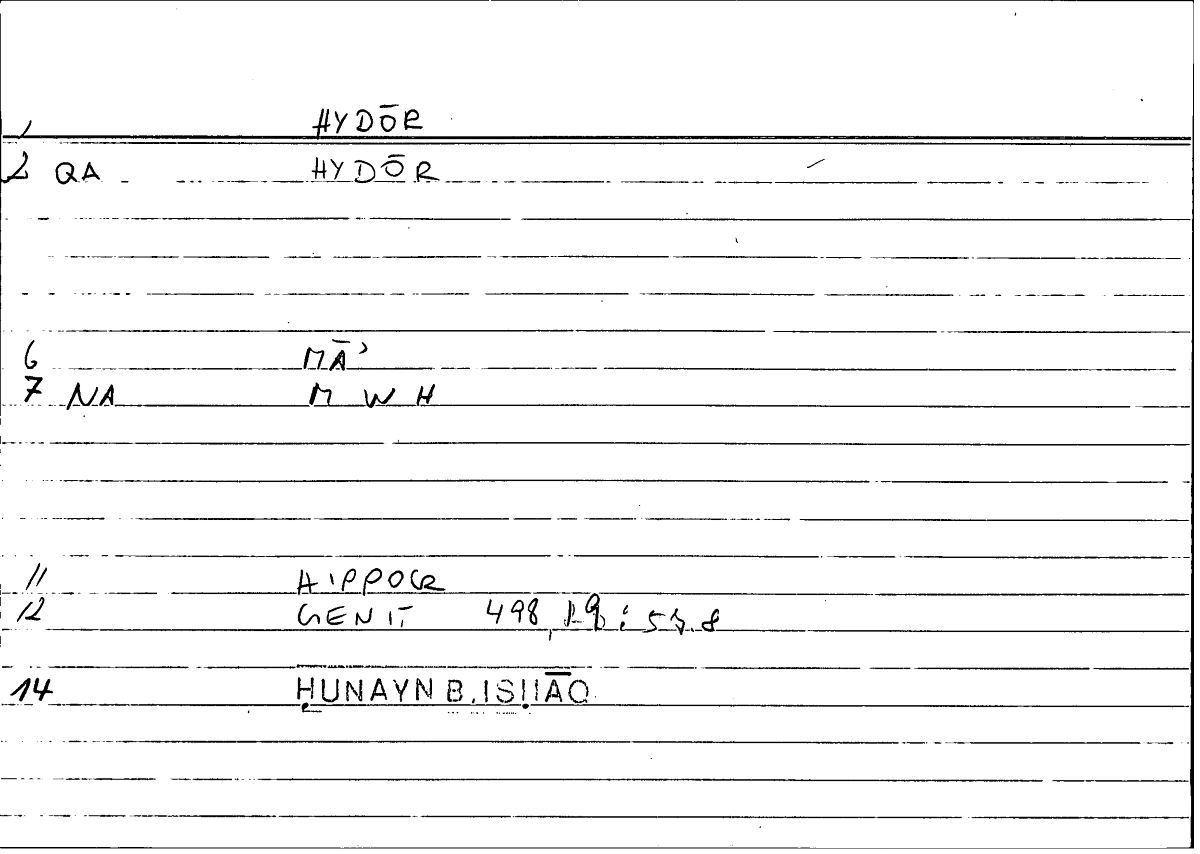 1 HYDŌR
2 QA HYDŌR
6 MĀʾ
7 NA M W H
11 HIPPOCR
12 GENIT. 498,
14 ḤUNAYN B. ISḤĀQ